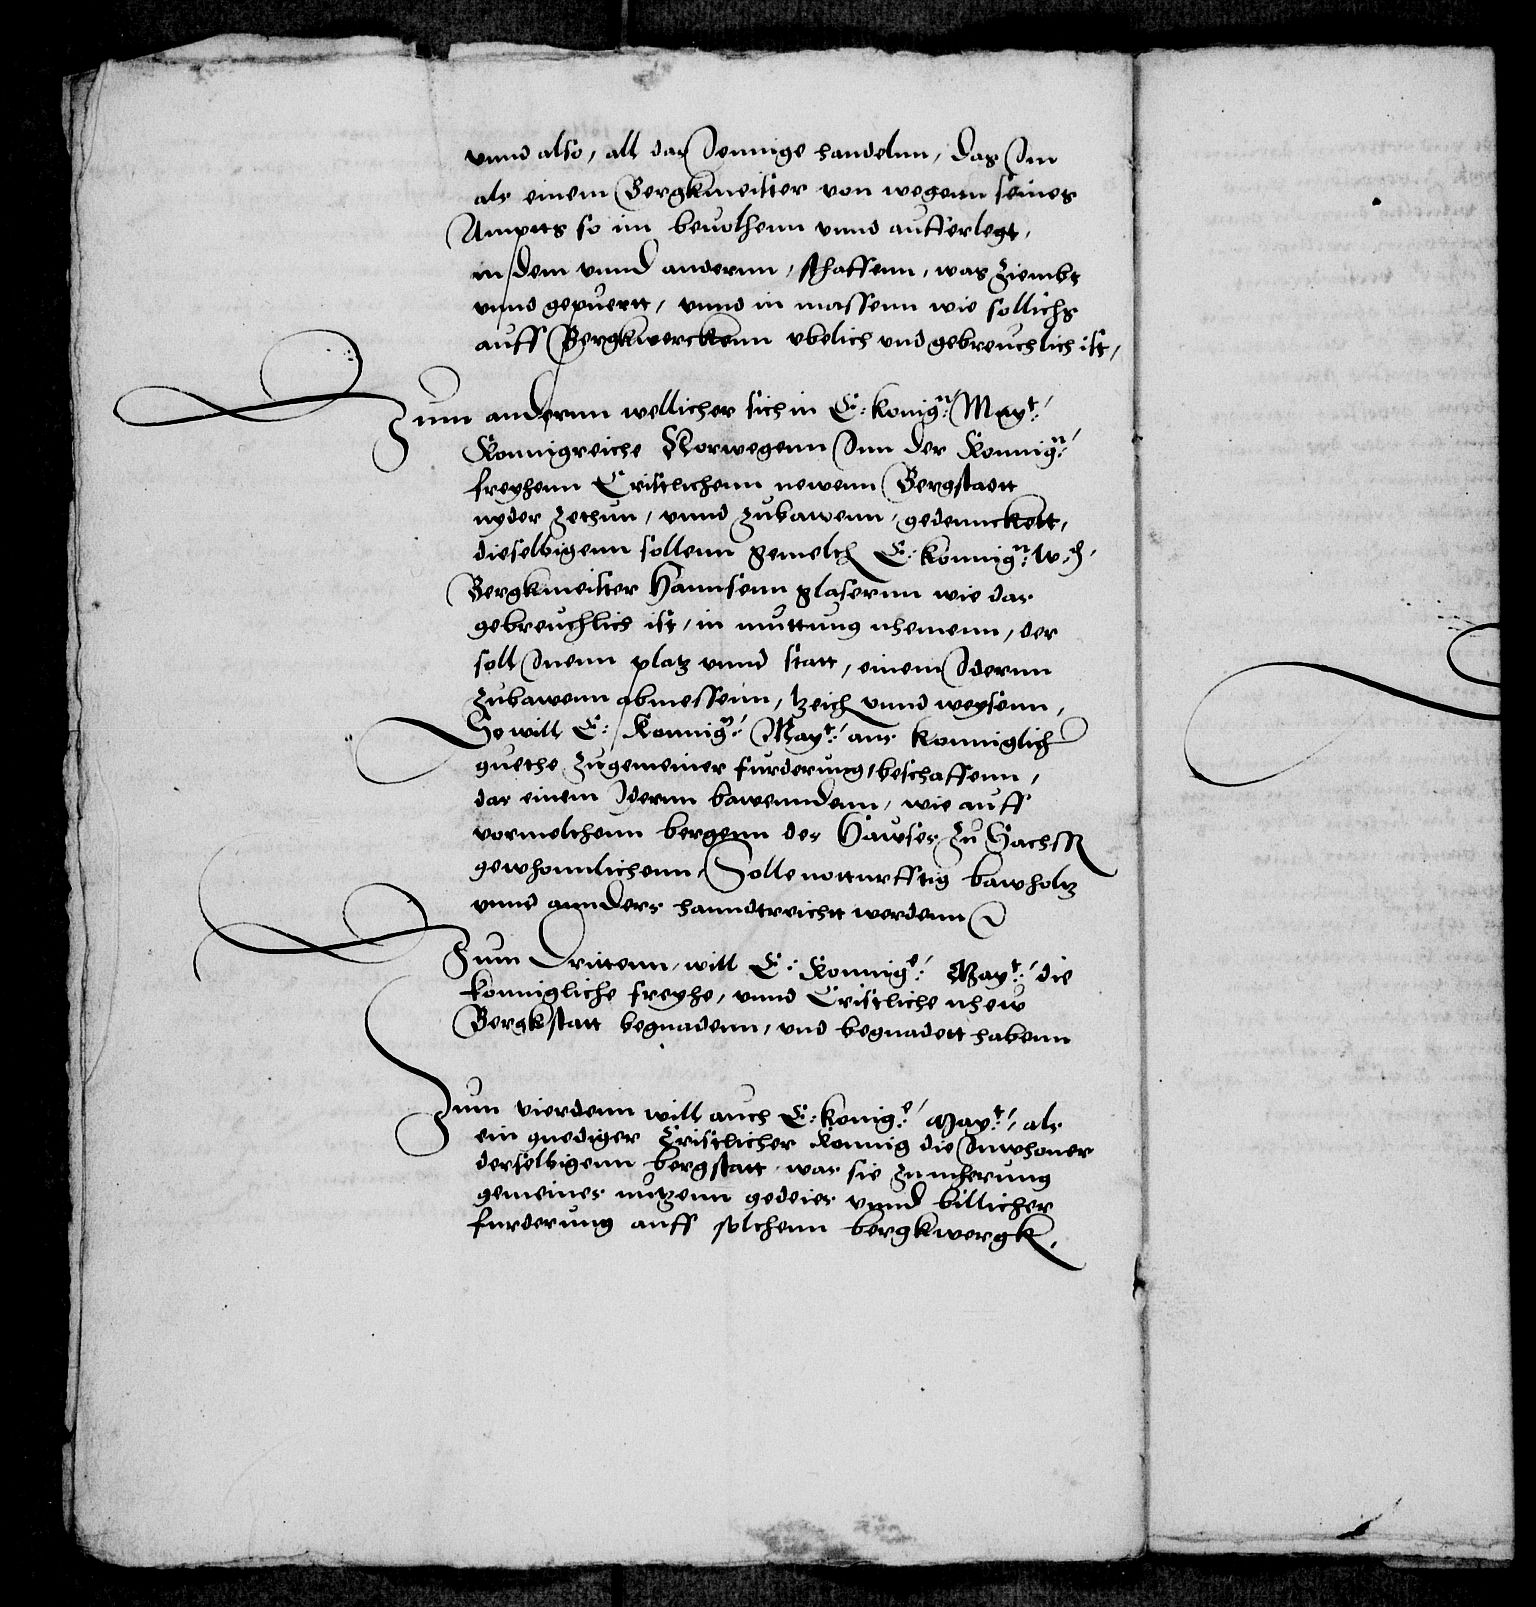 vnnd also, all das Jennige handelnn, Das Im
als einem Bergkmeister von wegenn seines
Ampts so im beuolhenn vnnd aufferlegt,
in dem vnnd andernn, schaffenn, was ziembt
vnnd gepuertt, vnnd in massenn wie sollichs
auff Bergkwerckenn vbelich vnd gebreuchlich ist,
Zum andernn wellicher sich in E: konig:n May:t
Konnigreiche Norwegenn Inn der Konnig:n
freyhenn Cristlichenn newenn Bergstadtt
nyder zethun, vnnd zubawenn, gedennckett,
dieselbigenn sollenn gemelch E: konnig:n W:
Bergkmeister Hannsenn glasernn wie das
gebreuchlich ist, in muttung nhemenn, der
soll Inenn platz vnnd statt, einem Idernn
zubawenn abmessenn, tzeich vnnd weysenn,
So will E: Konnig: May:t aus konniglich
guethe zugemeiner furderung, beschaffenn,
das einem Idernn bawenndenn, wie auff
vormelthenn bergenn des Hawses zu Sachssen
gewhonnlichenn, Solle notturfftig bawholtz
vnnd annders hanndtreicht werdenn
Zum Drittenn, will E: Konnig:e May:t die
konnigliche freyhe, vnnd Cristliche nhew
Bergkstatt begnadenn, vnd begnadett habenn
Zum vierdenn will auch E: konig:e May:t, als
ein gnediger Cristlicher Konnig die Inwhoner
derselbigenn bergstatt was sie zu nherung
gemeines nutzenn gedeies vnnd billicher
furderung auff solchenn bergkwergk,